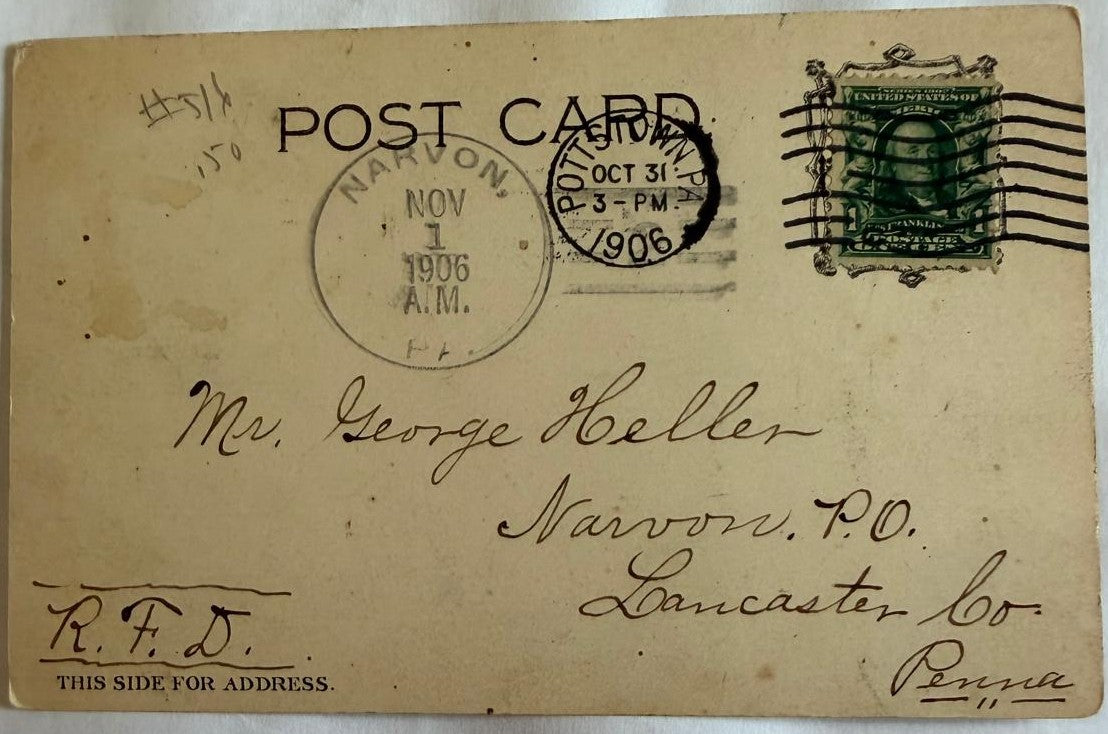 #51
150
POST CARD
NARVON,
NOV
1
1906
A.M.
PA.
POTTSTOWN, PA
OCT 31
3-PM.
1906
SERIES 1902
UNITED STATES OF
FRANKLIN
POSTAGE
Mr. George Heller
Narvon. P.O.
Lancaster Co.
Penna
R. F. D.
THIS SIDE FOR ADDRESS.